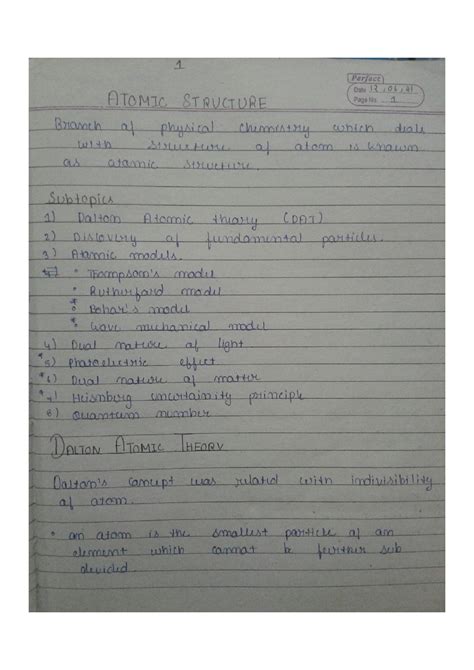 1
Perfect
Date 12, 04, 21
Page No. 1
ATOMIC STRUCTURE
Branch of physical chemistry which dials
with structure of atom is known
as atomic structure.
Subtopics
1) Dalton Atomic theory (DAT)
2) Discovery of fundamental particles.
3) Atomic models.
• Thompson's model
• Rutherford model
* Bohar's model
* Wave mechanical model
4) Dual nature of light
*5) Photoelectric effect
*6) Dual nature of matter
*7) Heisnberg uncertainity principle
8) Quantum number
DALTON ATOMIC THEORY
Dalton's concept was related with indivisibility
of atom.
• an atom is the smallest particle of an
element which cannot be further sub
devided